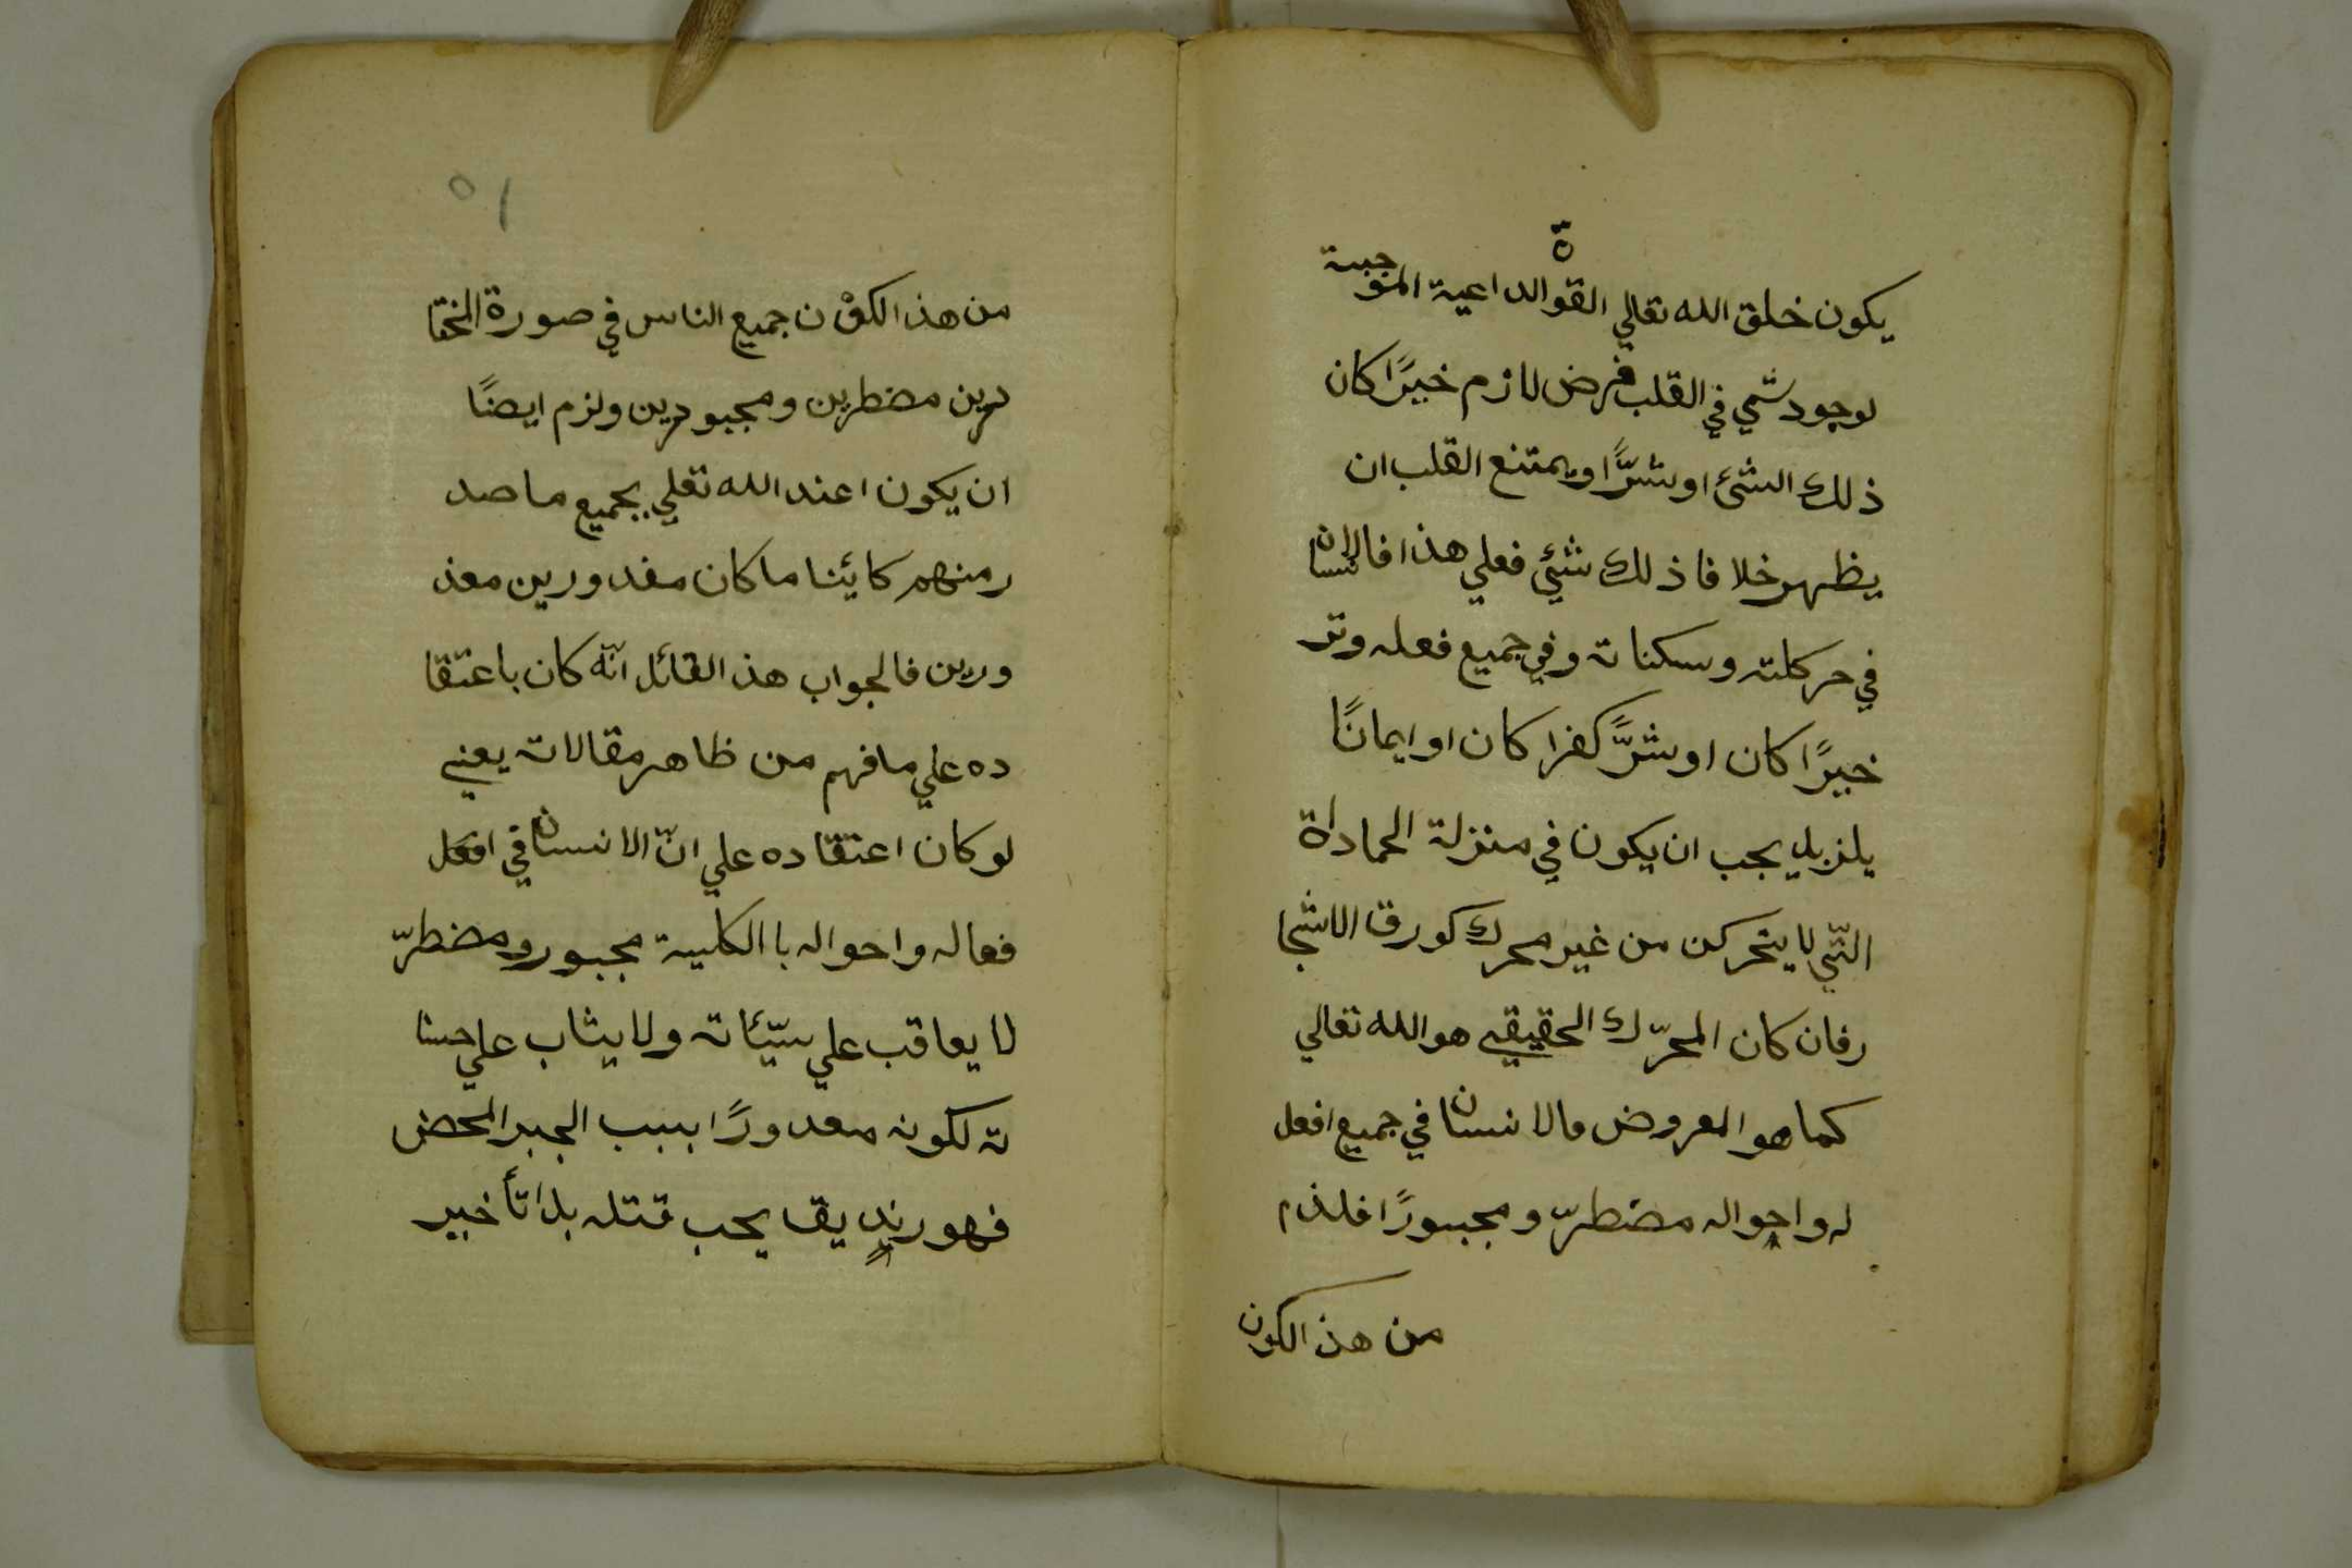 يكون خلق الله تعالي القوة الداعية الموجبة
لوجود شمي في القلب فرض لازم خيرًا كان
ذلك الشئ او شرًّا ويمتنع القلب ان
يظهر خلافا ذلك شئي فعلي هذا فالانسان
في حركلته وسكناته وفي جميع فعله وتر
خيرًا كان او شرًّ كفرا كان او ايمانًا
يلزبل يجب ان يكون في منزلة الجماداة
التّي لا يتحركن من غير محرك كورق الاشجا
رفان كان المحرّك الحقيقي هو الله تعالي
كما هو المعروض مالانسان في جميع افعل
له واحواله مضطرّ ومجبورًا فلذم
من هذ الكون
٥١
من هذ الكوْن جميع الناس في صورة المختا
درين مضطرين ومجبودرين ولزم ايضًا
ان يكون اعند الله تعلي بجميع ما صد
رمنهم كايئنا ما كان مغدورين معذ
ورين فالجواب هذ القائل انّه كان باعتقا
ده علي ما فهم من ظاهر مقالاته يعني
لو كان اعتقاده علي انّ الانسان في افعل
فعاله واحواله با الكلية مجبور ومضطرّ
لا يعاقب علي سيّئاته ولا يثاب علي حسنا
ته لكونه معدورًا ببب الجبر المحض
فهو رنديقا يجب قتله بلا تأخير